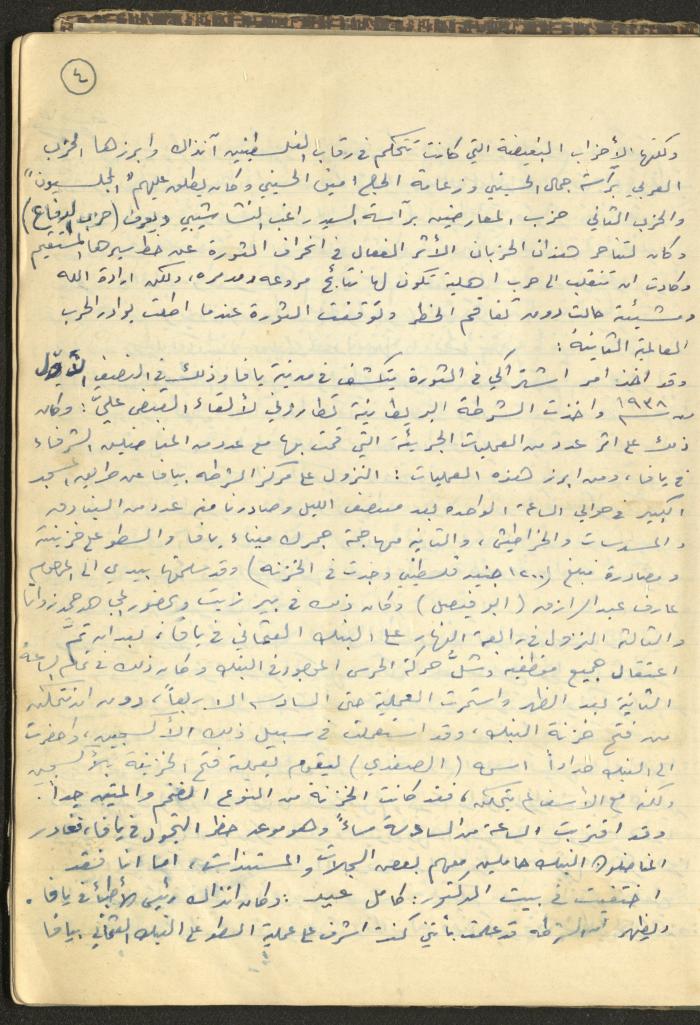 ٤
ولكنها الأحزاب البغيضة التي كانت تتحكم في رقاب الفلسطينيين آنذاك وابرزها الحزب
العربي برآسة جمال الحسيني وزعامة الحاج امين الحسيني وكان يطلق عليهم "المجلسيون"
والحزب الثاني حزب المعارضين برآسة السيد راغب النشاشيبي ويعرف (حزب الدفاع)
وكان لتناحر هذان الحزبان الأثر الفعال في انحراف الثورة عن خط سيرها المستقيم
وكادت ان تنقلب الى حرب اهلية تكون لها نتائج مروعه ومدمره، ولكن ارادة الله
ومشيئته حالت دون تفاقم الخطر وتوقفت الثورة عندما اطلت بوادر الحرب
العالمية الثانية :
وقد اخذ امر اشتراكي في الثورة يتكشف في مدينة يافا وذلك في النصف الأول
من سنة ١٩٣٨ واخذت الشرطة البريطانية تطاردني لألقاء القبض عليّ : وكان
ذلك على اثر عدد من العمليات الجريئة التي قمت بها مع عدد من المناضلين الشرفاء
في يافا، ومن ابرز هذه العمليات : النزول على مركز الشرطه بيافا عن طريق المسجد
الكبير في حوالي الساعة الواحده بعد منتصف الليل وصادرنا منه عدد من البنادق
والمسدسات والخراطيش، والثانيه مهاجمة جمرك ميناء يافا والسطو على خزينته
ومصادرة مبلغ (١٢٠٠ جنيه فلسطيني وجدت في الخزنه) وقد سلمتها بيدي الى المرحوم
عارف عبد الرازق (ابو فيصل) وكان ذلك في بير زيت وبحضور
والثالثة النزول في رابعة النهار على البنك العثماني في يافا، بعد ان تمّ
اعتقال جميع موظفيه وشلّ حركة الحرس الموجود في البنك وكان ذلك في تمام الساعة
الثانية بعد الظهر واستمرت العملية حتى السادسه الا ربعاً، دون ان نتمكن
من فتح خزنة البنك، وقد استعملت في سبيل ذلك الأكسجين، واحضرت
الى البنك حداداً اسمه (الصفدي) ليقوم بعملية فتح الخزينة بالأكسجين
ولكنه مع الأسف لم يتمكن، فقد كانت الخزنه من النوع الضخم والمتين جداً :
وقد اقتربت الساعة من السادسة مساءً وهو موعد حظر التجول في يافا، فغادر
المناضلون البنك حاملين معهم بعض السجلات والمستندات، اما انا فقد
اختفيت في بيت الدكتور : كامل عبيد : وكان انذاك رئيس الأطباء في يافا .
ويظهر ان الشرطه قد علمت بأنني كنت اشرف على عملية السطو على البنك العثماني بيافا